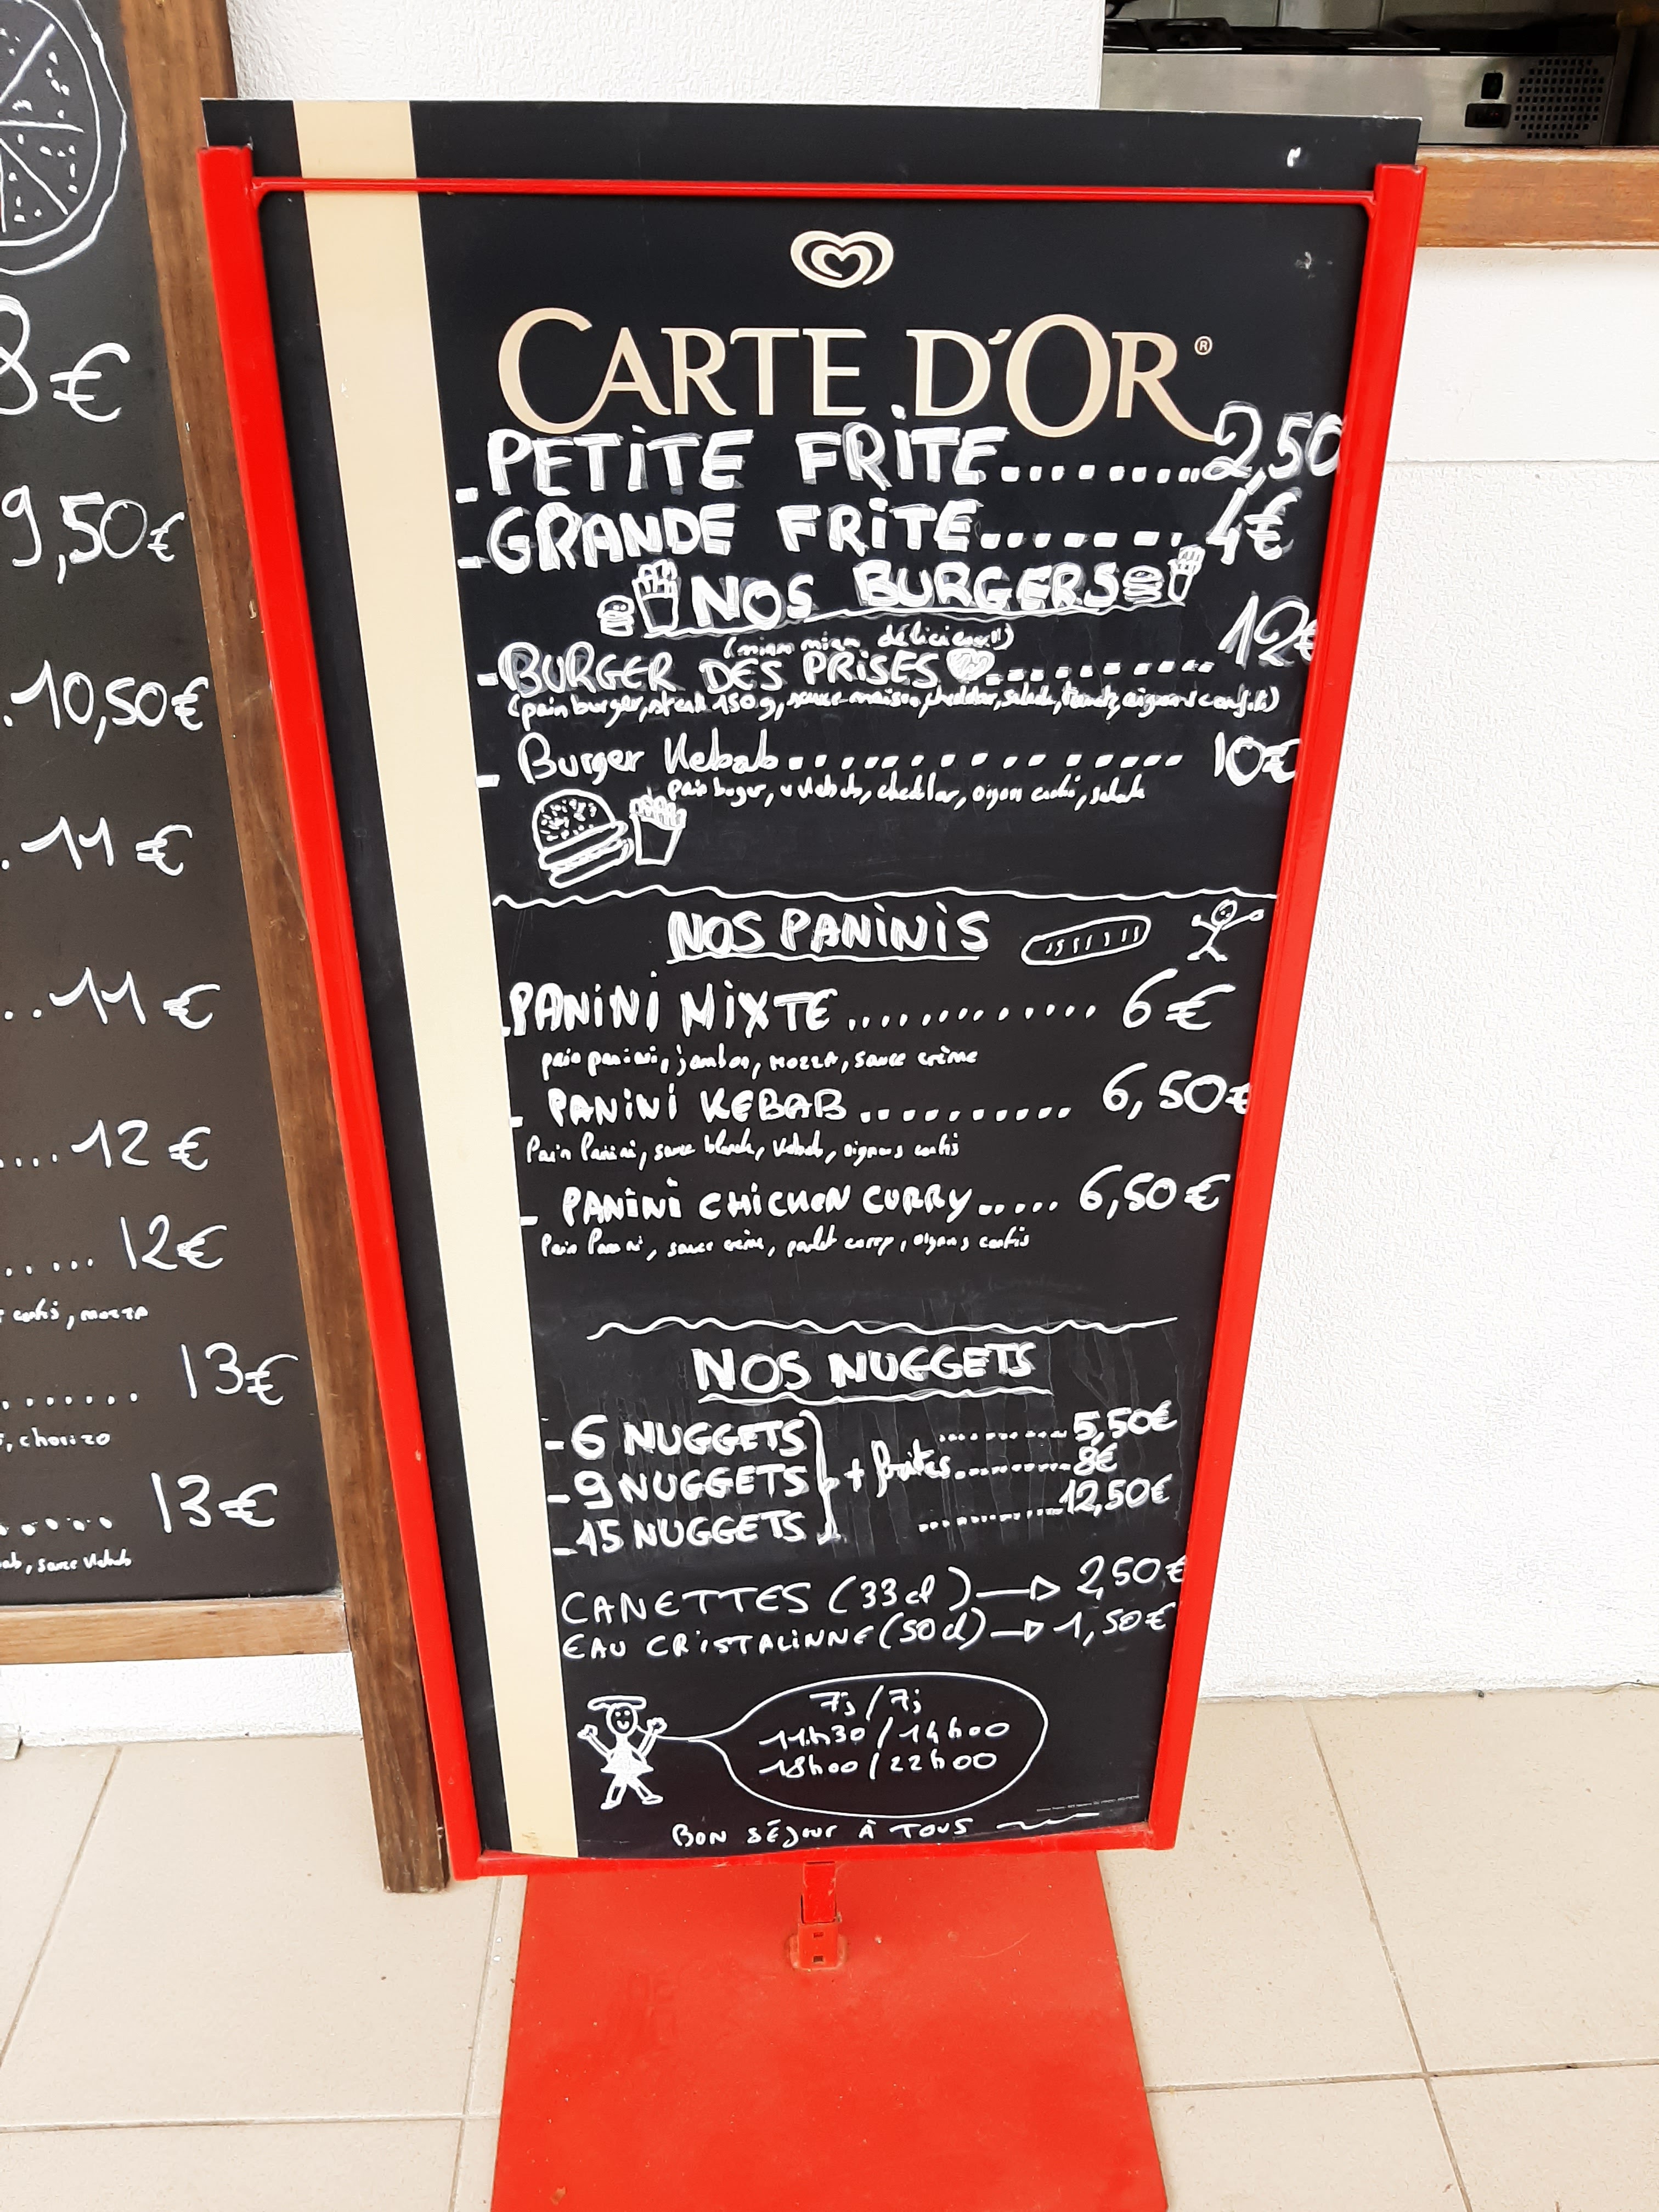 8€
9,50€
.10,50€
.11€
...11€
....12€
......12€
confis, mozza
.......13€
, chorizo
.......13€
, sauce kebab
CARTE D'OR®
-PETITE FRITE.........2,50
-GRANDE FRITE.......4€
NOS BURGERS
(miam miam délicieux!!)
-BURGER DES PRISES..........12€
(pain burger, steak 150g, sauce maison, cheddar, salade, tomate, oignons confits)
- Burger Kebab.................10€
pain burger, kebab, cheddar, oignon confis, salade
NOS PANINIS
.PANINI MIXTE.............6€
pain panini, jambon, mozza, sauce crème
- PANINI KEBAB...........6,50€
Pain Panini, sauce blanche, kebab, oignons confis
- PANINI CHICKEN CURRY.....6,50€
Pain Panini, sauce crème, poulet curry, oignons confis
NOS NUGGETS
-6 NUGGETS ............5,50€
-9 NUGGETS + frites...........8€
-15 NUGGETS ............12,50€
CANETTES (33cl)→2,50€
EAU CRISTALINNE (50cl)→1,50€
7j/7j
11h30/14h00
18h00/22h00
BON SÉJOUR À TOUS